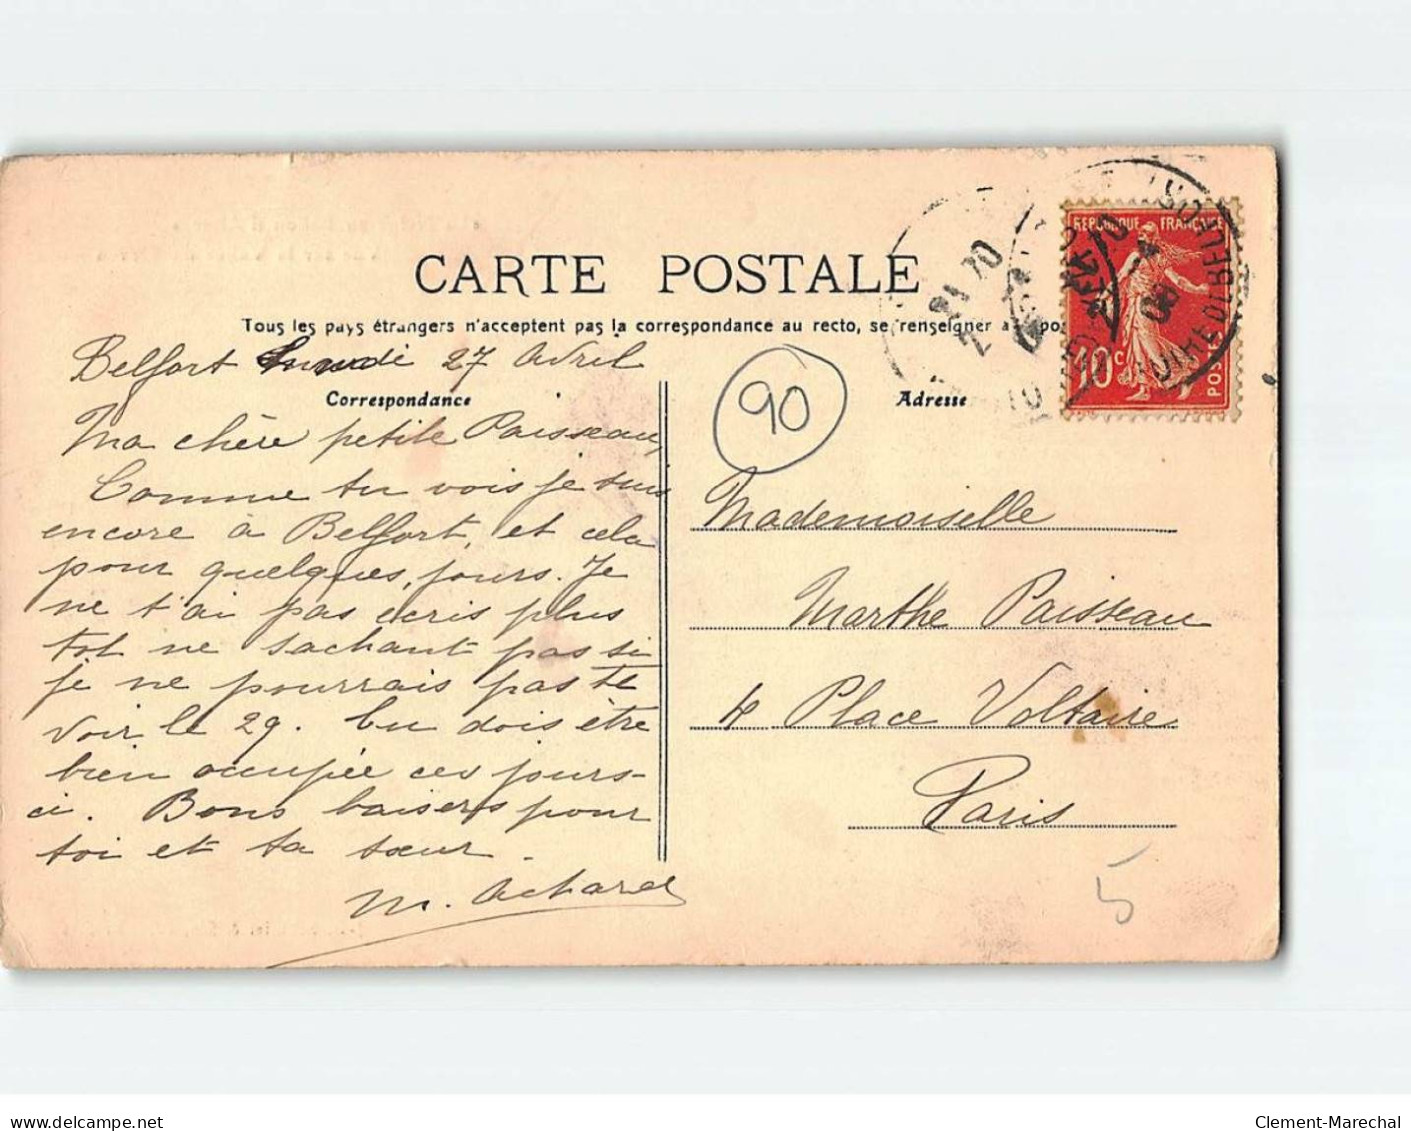 CARTE POSTALE
Tous les pays étrangers n'acceptent pas la correspondance au recto, se renseigner à
Belfort Lundi 27 Avril
Correspondance
Adresse
90
RÉPUBLIQUE FRANÇAISE
10c
POSTES
Ma chère petite Paisseau,
Comme tu vois je suis
encore à Belfort, et cela
pour quelques jours. Je
ne t'ai pas écris plus
tot ne sachant pas si
je ne pourrais pas te
voir le 29. Tu dois être
bien occupée ces jours-
ci. Bons baisers pour
toi et ta sœur.
M. Acharel
Mademoiselle
Marthe Paisseau
4 Place Voltaire
Paris
5
delcampe.net
Clement-Marechal